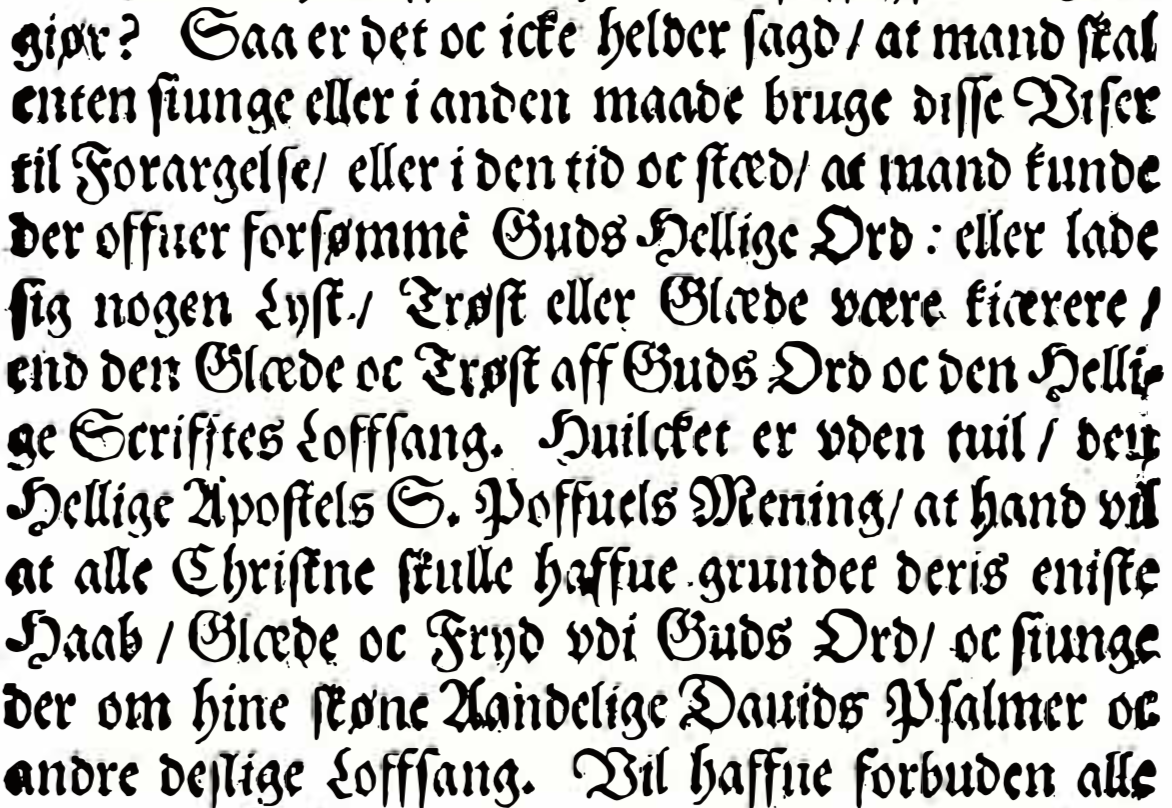 giør? Saa er det oc icke helder sagd / at mand skal
enten siunge eller i anden maade bruge disse Viser
til Forargelse / eller i den tid oc stæd / at mand kunde
der offuer forsømme Guds Hellige Ord : eller lade
sig nogen Lyst / Trøst eller Glæde være kiærere /
end den Glæde oc Trøst aff Guds Ord oc den Helli-
ge Scrifftes Loffsang. Huilcket er vden tuil / den
Hellige Apostels S. Poffuels Mening / at hand vil
at alle Christne skulle haffue grundet deris eniste
Haab / Glæde oc Fryd vdi Guds Ord / oc siunge
der om hine skøne Aandelige Dauids Psalmer oc
andre deslige Loffsang. Vil haffue forbuden alle